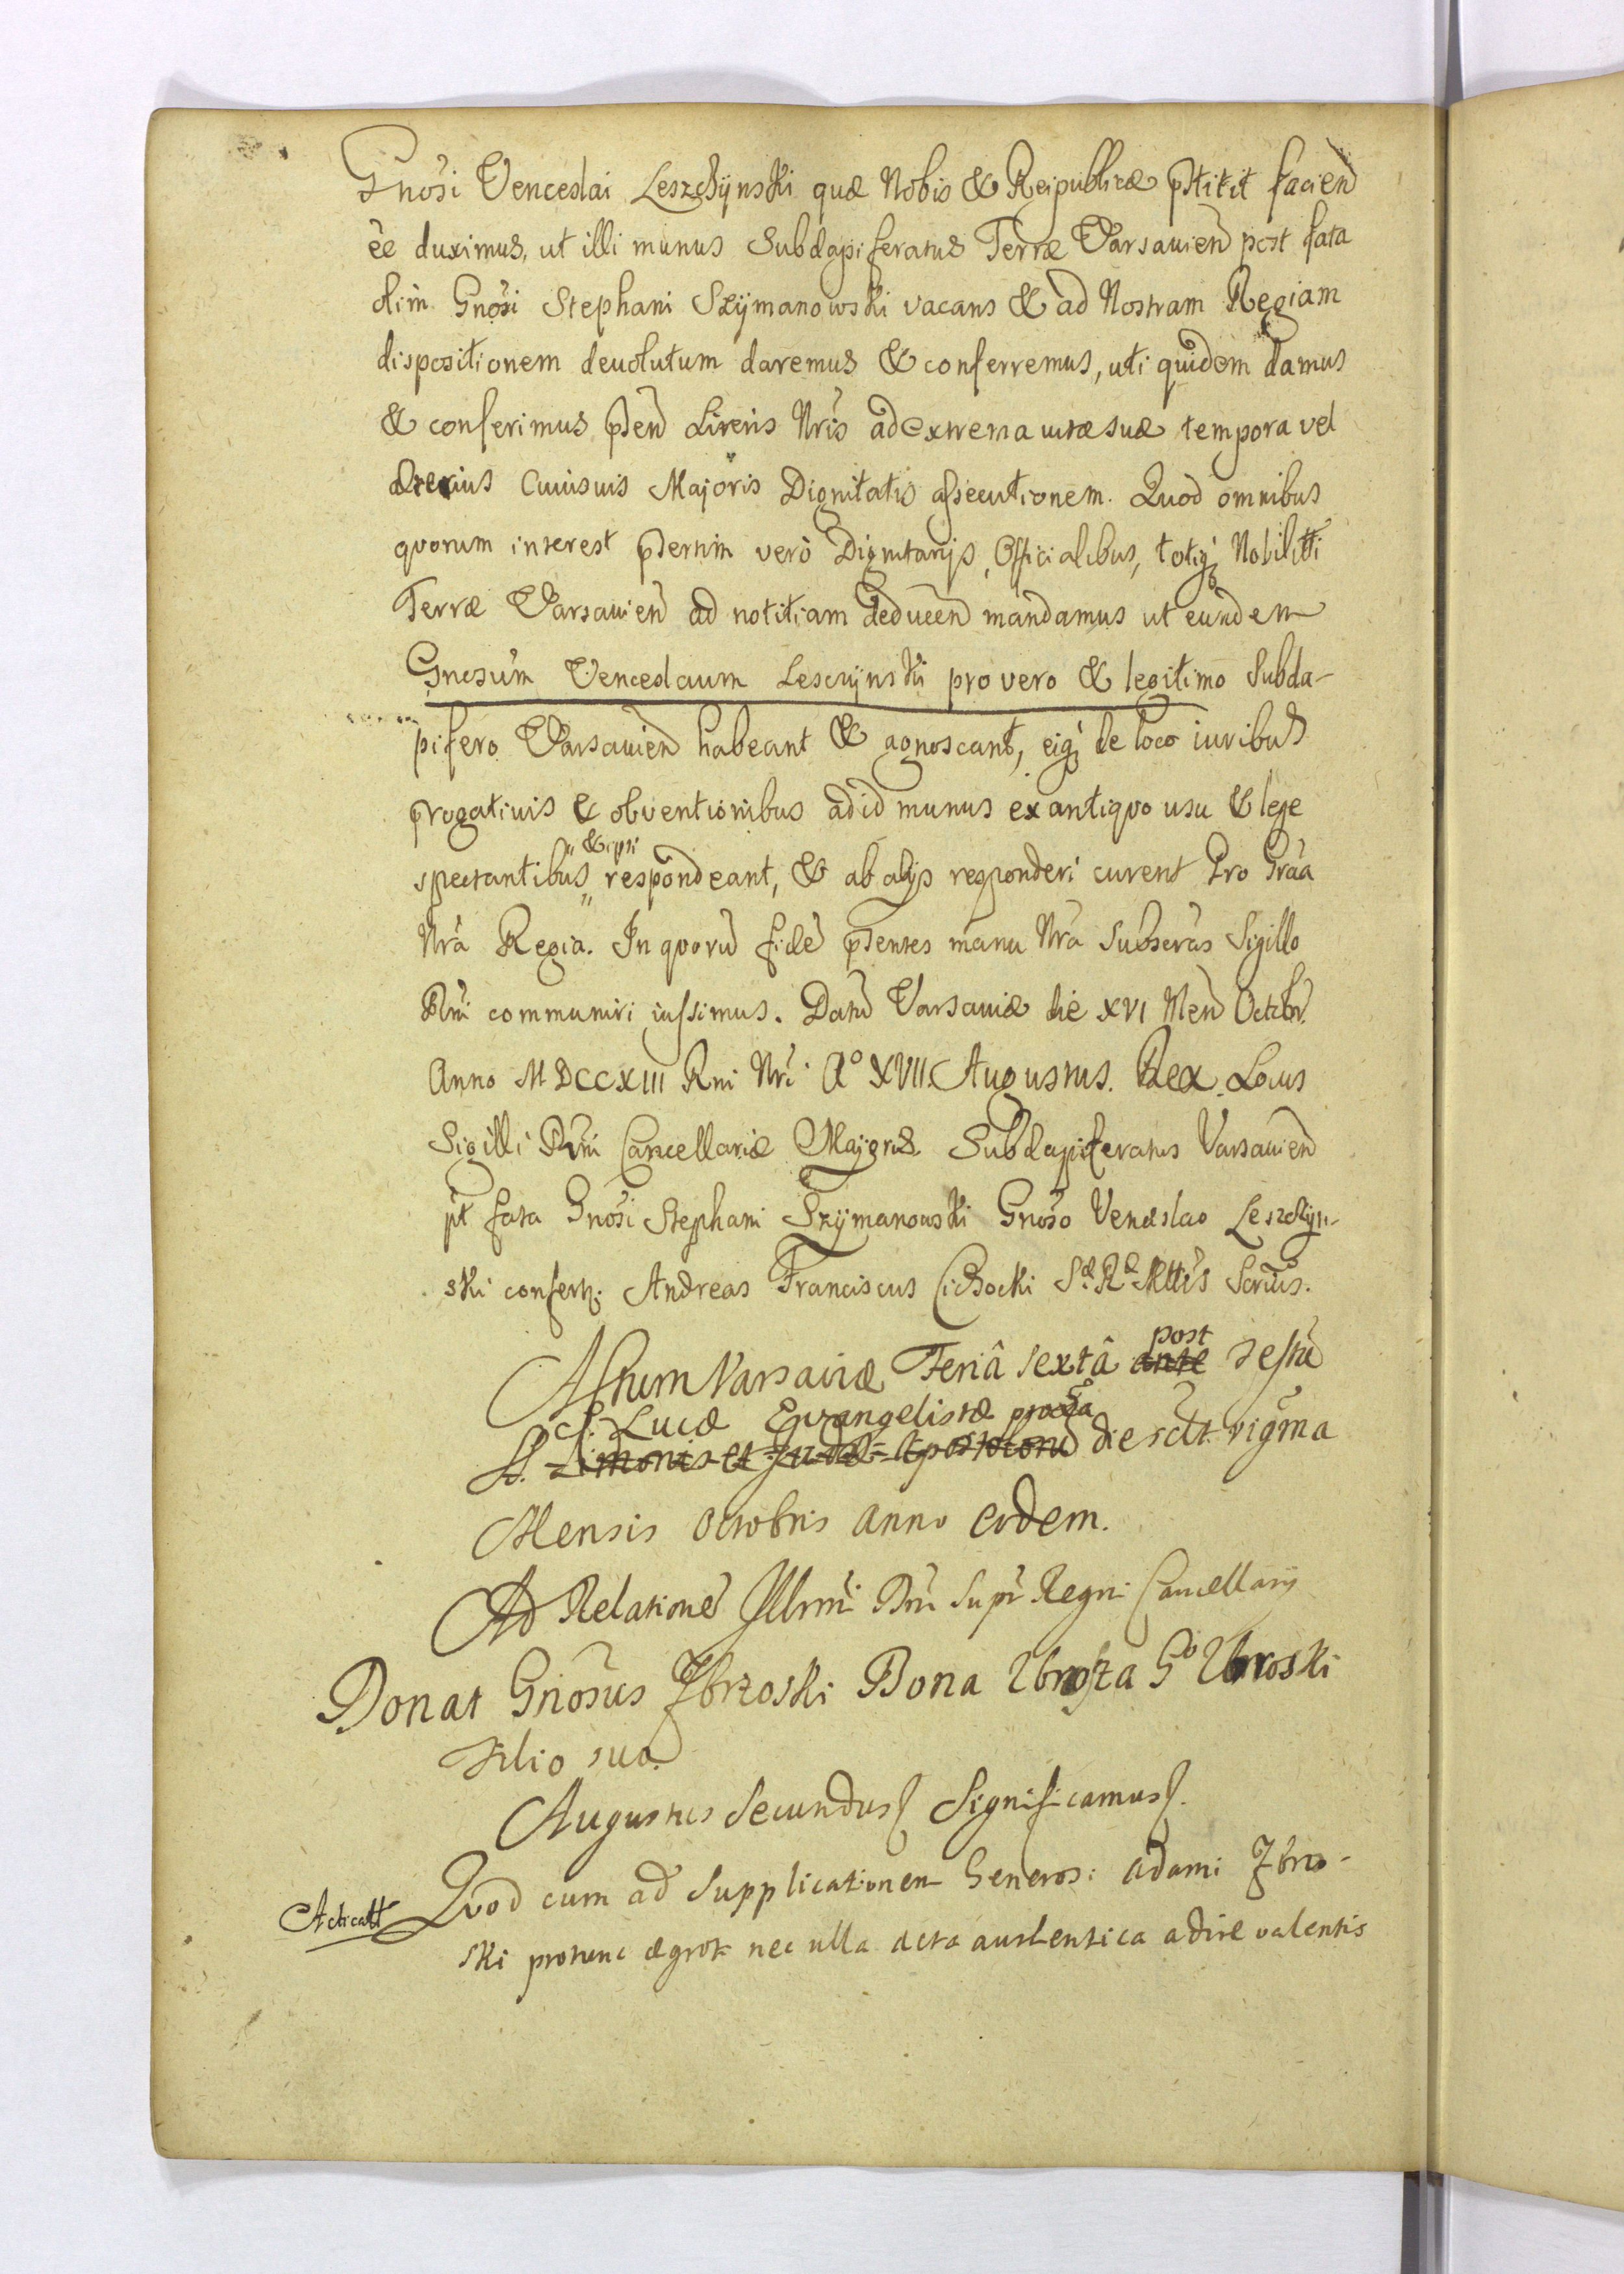 Gnosi Venceslai Leszczynski quæ Nobis & Reipublicæ pstitit faciend
ee duximus, ut illi munus Subdapiferatus Terræ Varsauien post fata
olim Gnosi Stephani Szymanowski vacans & ad Nostram Regiam
dispositionem deuolutum daremus & conferremus, uti quidem damus
& conferimus pñten Literis Nris ad extrema uitæ suæ tempora vel
alterius Cuiusuis Majoris Dignitatis assecutionem. Quod omnibus
quorum interest psertim verò Dignitarijs, Officialibus, totiq; Nobilitti
Terræ Varsauien ad notitiam deducen mandamus ut eundem
Gnosum Venceslaum Lesczynski pro vero & legitimo Subda-
pifero Varsauien habeant & agnoscant, eiq; de loco iuribus
progatiuis & obuentionibus ad id munus ex antiquo usu & lege
spectantibus & ipsi respondeant, & ab alijs responderi curent Pro Graa
Nra Regia. In quoru fide psentes manu Nra Subscras Sigillo
Rni communiri iussimus. Datu Varsauiæ die XVI Men Octobr.
Anno MDCCXIII Rni Nri Aº XVII. Augustus. Rex. Locus
Sigilli Rni Cancellariæ Majoris. Subdapiferatus Varsauien
pt fata Gnosi Stephani Szymanowski Gnoso Venceslao Leszczyn-
ski confertr. Andreas Franciscus Cichocki Sæ Ræ Mttis Scrius.
Actum Varsaviæ Feriâ sextâ ante post festu
S. Lucæ Evangelistæ proxa
SS. Simonis et Judæ Apostoloru die scilt vigma
Mensis Octobris Anno eodem.
Ad Relatione Illmi Dni Supr Regni Cancellarij
Donat Gnosus Zbrzoski Bona Zbrosza Go Zbroski
Filio suo.
Augustus Secundus Significamus.
Acticatt Quod cum ad Supplicationem Generos: Adami Zbro-
ski protunc ægrot nec ulla acta authentica adire valentis